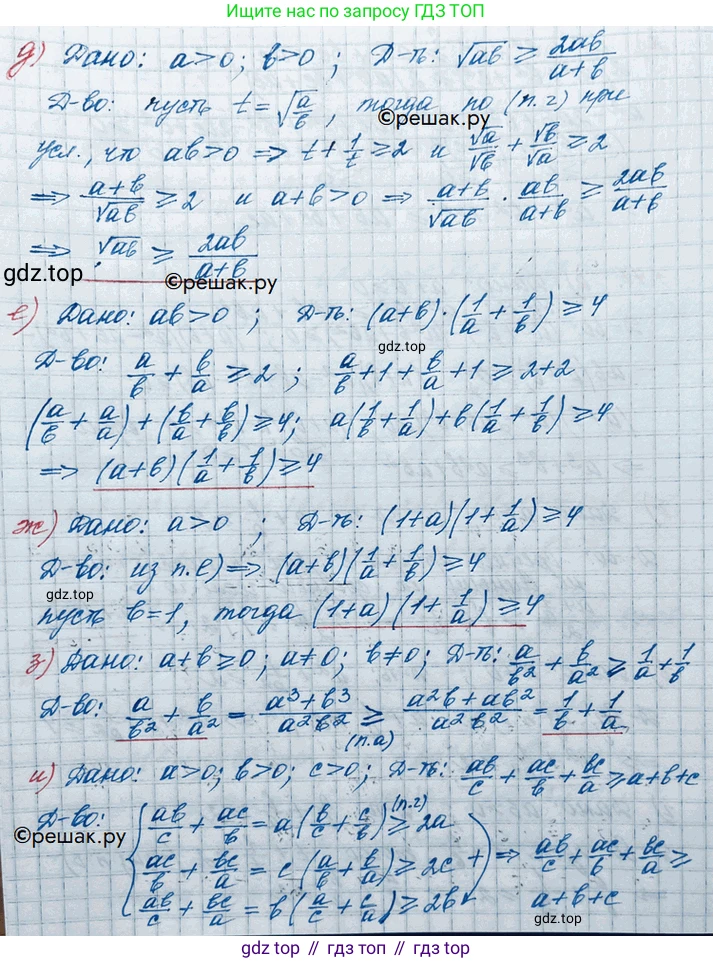 Ищите нас по запросу ГДЗ ТОП
д) Дано: a>0; b>0; Д-ть: √ab ≥ 2ab/(a+b)
Д-во: пусть t=√(a/b), тогда по (п.г) при
©решак.ру
усл., что ab>0 ⇒ t+1/t ≥2 и √a/√b + √b/√a ≥ 2
⇒ (a+b)/√ab ≥ 2 и a+b>0 ⇒ (a+b)/√ab · ab/(a+b) ≥ 2ab/(a+b)
⇒ √ab ≥ 2ab/(a+b)
gdz.top
©решак.ру
е) Дано: ab>0; Д-ть: (a+b)·(1/a + 1/b) ≥ 4
gdz.top
Д-во: a/b + b/a ≥ 2; a/b+1+b/a+1 ≥ 2+2
(a/b + a/a)+(b/a + b/b) ≥ 4; a(1/b + 1/a)+b(1/a + 1/b) ≥ 4
⇒ (a+b)(1/a + 1/b) ≥ 4
ж) Дано: a>0; Д-ть: (1+a)(1+1/a) ≥ 4
Д-во: из п.е) ⇒ (a+b)(1/a + 1/b) ≥ 4
gdz.top
пусть b=1, тогда (1+a)(1+1/a) ≥ 4
з) Дано: a+b≥0; a≠0; b≠0; Д-ть: a/b² + b/a² ≥ 1/a + 1/b
Д-во: a/b² + b/a² = (a³+b³)/(a²b²) ≥ (a²b+ab²)/(a²b²) = 1/b + 1/a
(п.а)
и) Дано: a>0; b>0; c>0; Д-ть: ab/c + ac/b + bc/a ≥ a+b+c
Д-во: { ab/c + ac/b = a(b/c + c/b) ≥ 2a
(п.г)
©решак.ру
ac/b + bc/a = c(a/b + b/a) ≥ 2c + ⇒ ab/c + ac/b + bc/a ≥
ab/c + bc/a = b(a/c + c/a) ≥ 2b a+b+c
gdz.top
gdz top // гдз топ // gdz.top